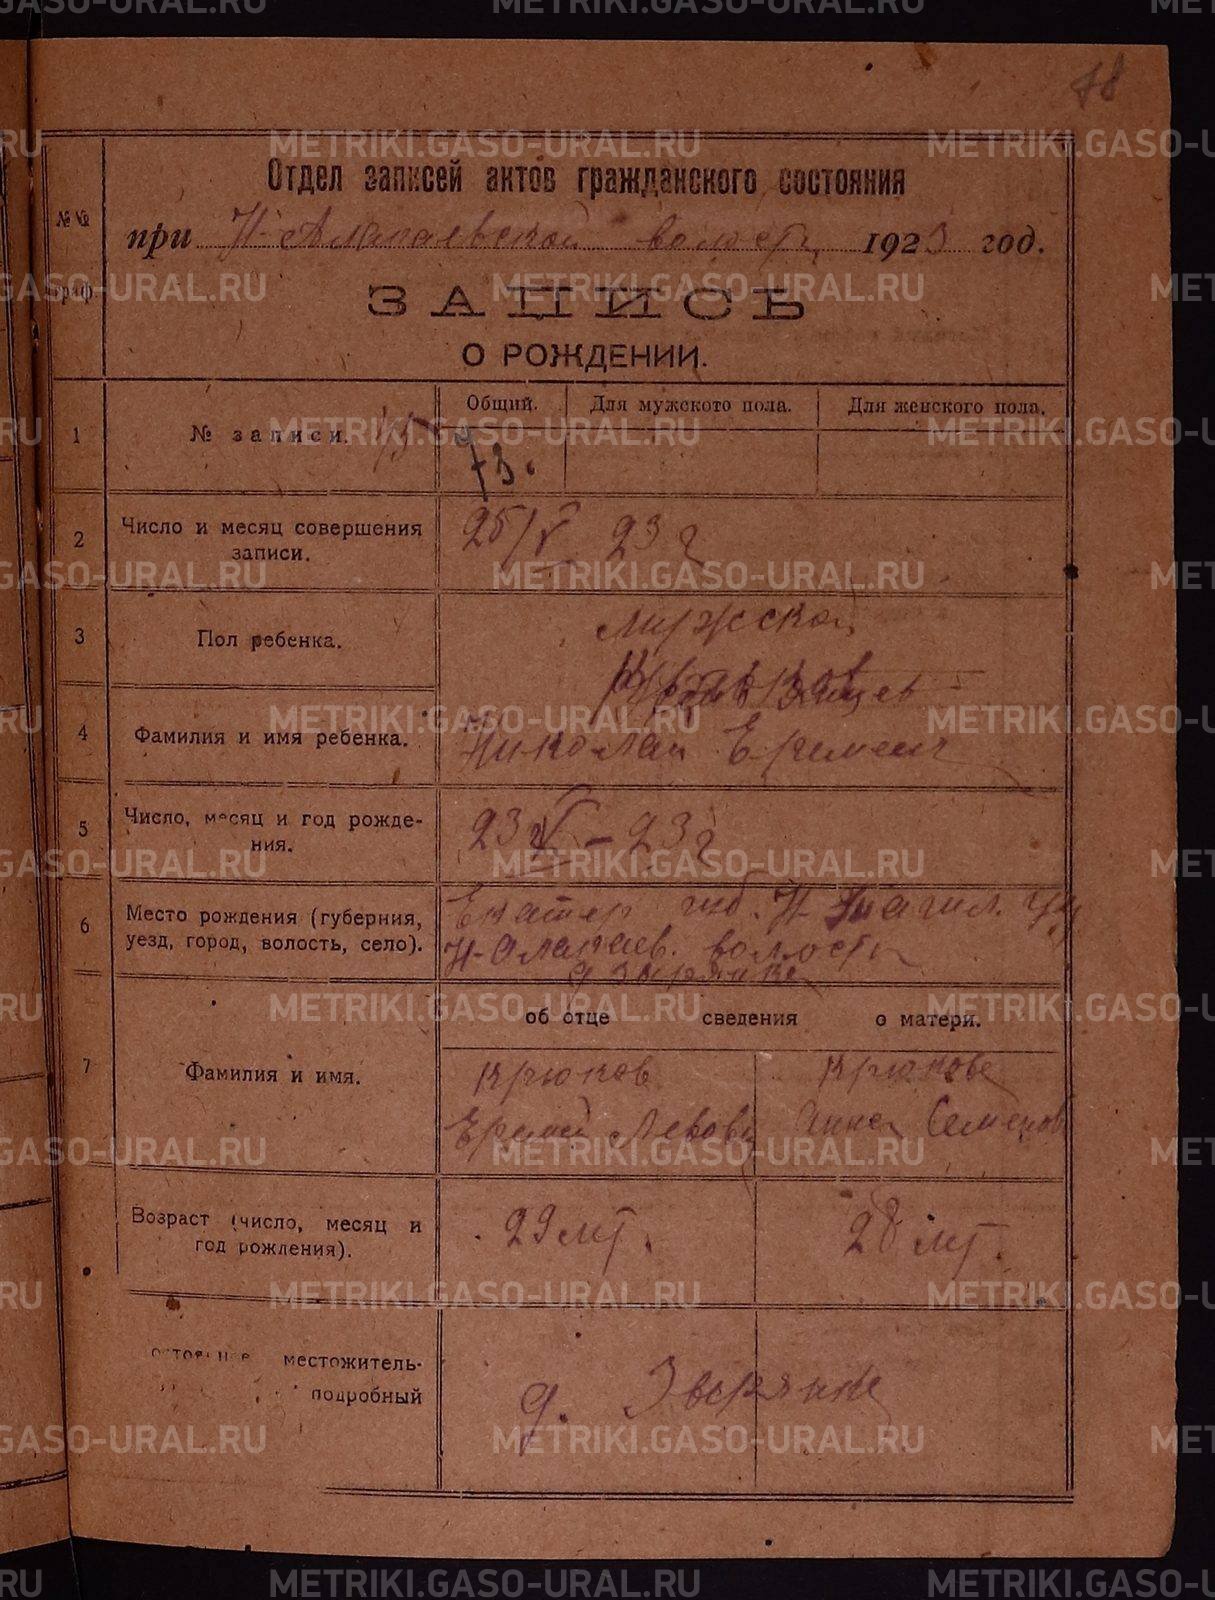 78
Отдел записей актов гражданского состояния
№№ граф
при Н-Алапаевской волости 1923 год.
ЗАПИСЬ
О РОЖДЕНИИ.
Общий. Для мужского пола. Для женского пола.
1 № записи. 73.
2 Число и месяц совершения записи. 25/V 23 г
3 Пол ребенка. мужской
4 Фамилия и имя ребенка. Николай Еремеич
5 Число, месяц и год рождения. 23 V – 23 г
6 Место рождения (губерния, уезд, город, волость, село). Екатер губ. Н-Тагил. уу
Н-Алапаев. волость
д Зырянка
об отце сведения о матери.
7 Фамилия и имя. Крюков Крюкова
Еремей Левович Анна Семенов
Возраст (число, месяц и год рождения). 29 лет. 28 лет.
местожитель-
подробный
д.
METRIKI.GASO-URAL.RU